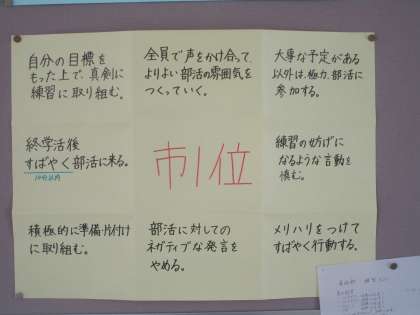 自分の目標を
もった上で、真剣に
練習に取り組む。
全員で声をかけ合って、
よりよい部活の雰囲気を
つくっていく。
大事な予定がある
以外は、極力、部活に
参加する。
終学活後
すばやく部活に来る。
10分以内
市1位
練習の妨げに
なるような言動を
慎む。
積極的に準備・片付け
に取り組む。
部活に対しての
ネガティブな発言を
やめる。
メリハリをつけて
すばやく行動する。